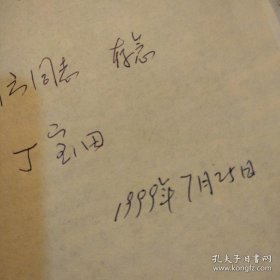 同志 存念
丁宝田
1999年7月25日
孔夫子旧书网